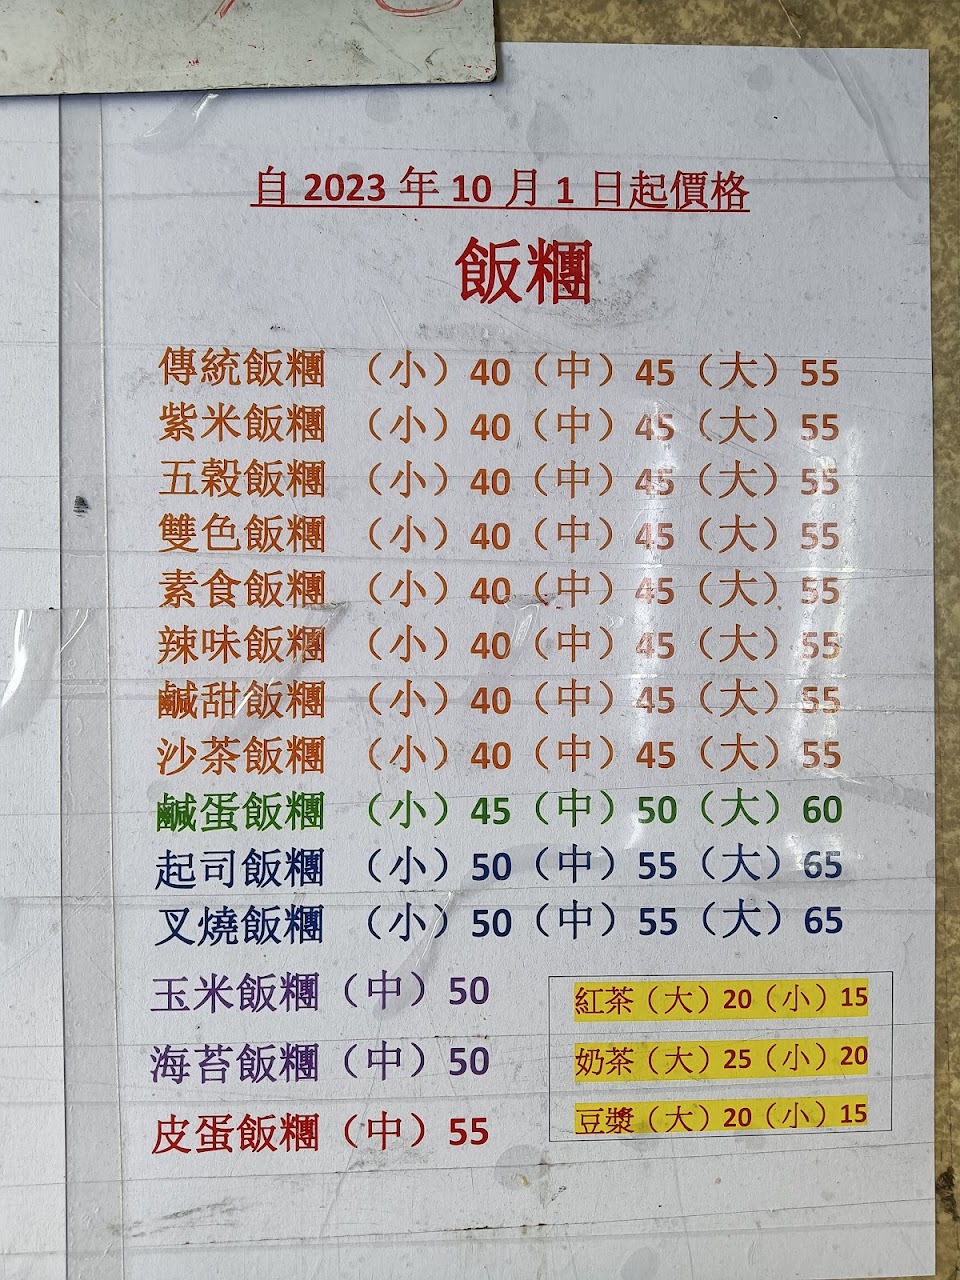 自 2023 年 10 月 1 日起價格
飯糰
傳統飯糰 （小）40（中）45（大）55
紫米飯糰 （小）40（中）45（大）55
五穀飯糰 （小）40（中）45（大）55
雙色飯糰 （小）40（中）45（大）55
素食飯糰 （小）40（中）45（大）55
辣味飯糰 （小）40（中）45（大）55
鹹甜飯糰 （小）40（中）45（大）55
沙茶飯糰 （小）40（中）45（大）55
鹹蛋飯糰 （小）45（中）50（大）60
起司飯糰 （小）50（中）55（大）65
叉燒飯糰 （小）50（中）55（大）65
玉米飯糰（中）50
海苔飯糰（中）50
皮蛋飯糰（中）55
紅茶（大）20（小）15
奶茶（大）25（小）20
豆漿（大）20（小）15